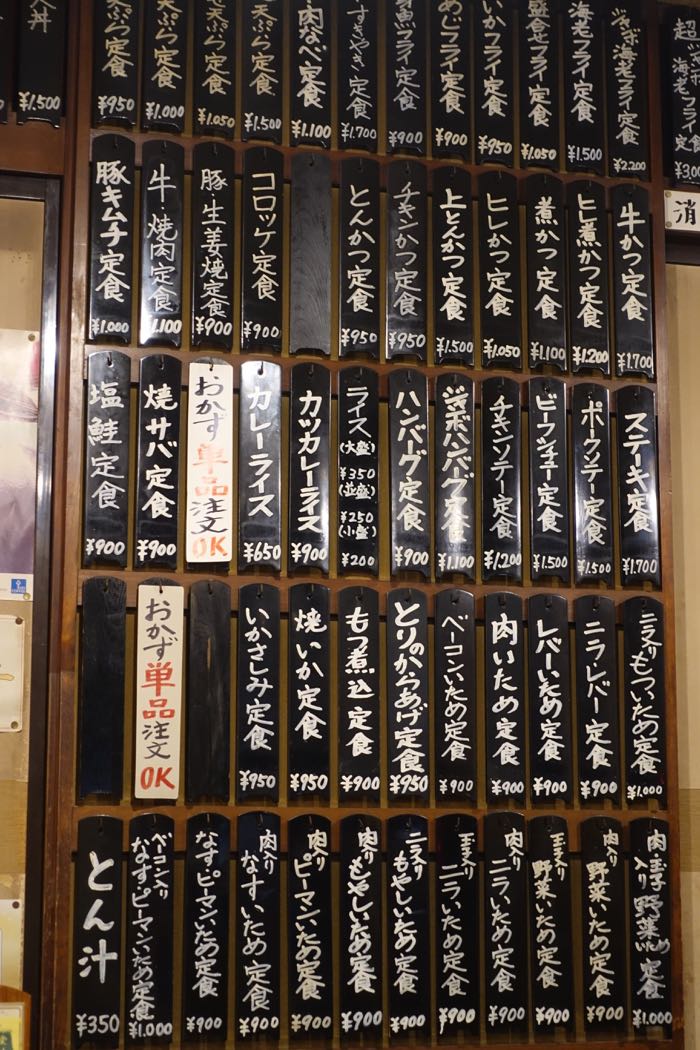 海老フライ定食
¥3,00
ジャンボ海老フライ定食
¥2,200
海老フライ定食
¥1,500
盛合せフライ定食
¥1,050
いかフライ定食
¥950
あじフライ定食
¥900
魚フライ定食
¥900
すきやき定食
¥1,700
肉なべ定食
¥1,100
天ぷら定食
¥1,500
天ぷら定食
¥1,050
天ぷら定食
¥1,000
天ぷら定食
¥950
天丼
¥1,500
消
牛かつ定食
¥1,700
ヒレ煮かつ定食
¥1,200
煮かつ定食
¥1,100
ヒレかつ定食
¥1,050
上とんかつ定食
¥1,500
チキンかつ定食
¥950
とんかつ定食
¥950
コロッケ定食
¥900
豚・生姜焼定食
¥900
牛・焼肉定食
1,100
豚キムチ定食
¥1,000
ステーキ定食
¥1,700
ポークソテー定食
¥1,500
ビーフシチュー定食
¥1,500
チキンソテー定食
¥1,200
ジャンボハンバーグ定食
¥1,100
ハンバーグ定食
¥900
ライス
(大盛)
¥350
(並盛)
¥250
(小盛)
¥200
カツカレーライス
¥900
カレーライス
¥650
おかず単品注文OK
焼サバ定食
¥900
塩鮭定食
¥900
ニラ入りもついため定食
¥1,000
ニラ・レバー定食
¥900
レバーいため定食
¥900
肉いため定食
¥900
ベーコンいため定食
¥900
とりのからあげ定食
¥950
もつ煮込定食
¥900
焼いか定食
¥950
いかさしみ定食
¥950
おかず単品注文OK
肉・玉子入り野菜いため定食
¥1,000
肉入り野菜いため定食
¥900
玉子入り野菜いため定食
¥900
肉入りニラいため定食
¥900
玉子入りニラいため定食
¥900
ニラ入りもやしいため定食
¥900
肉入りもやしいため定食
¥900
肉入りピーマンいため定食
¥900
肉入りなすいため定食
¥900
なす・ピーマンいため定食
¥900
ベーコン入りなす・ピーマンいため定食
¥1,000
とん汁
¥350